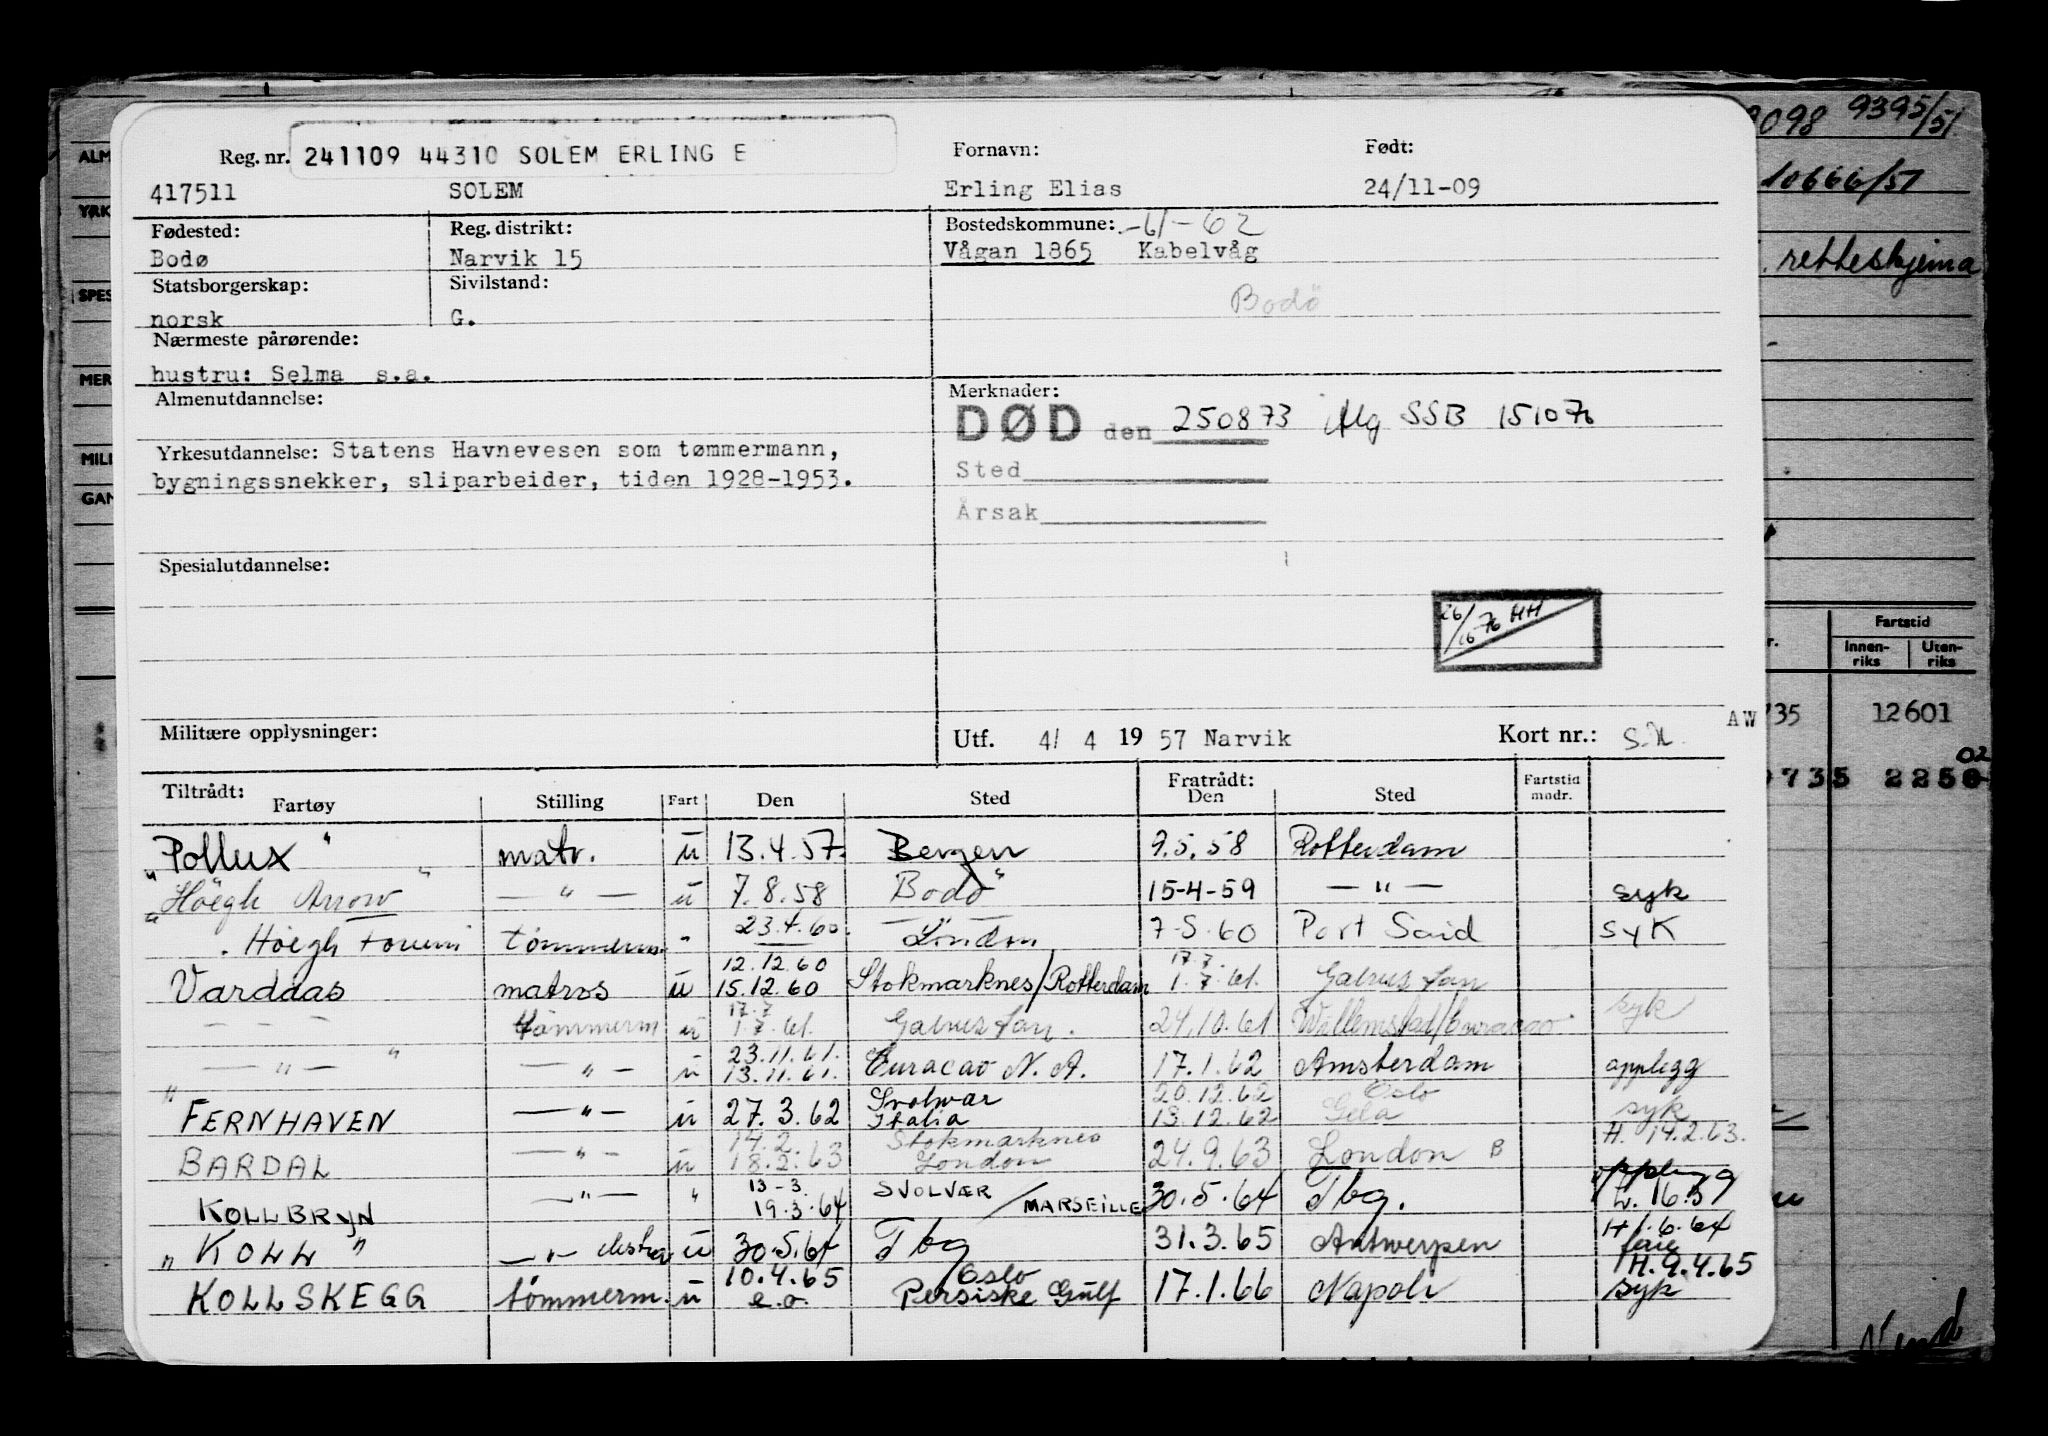 Reg. nr. 241109 44310 SOLEM ERLING E Fornavn: Født:
417511 SOLEM Erling Elias 24/11-09
Fødested: Reg. distrikt: Bostedskommune: -61-62
Bodø Narvik 15 Vågan 1865 Kabelvåg
Statsborgerskap: Sivilstand: Bodö
norsk G.
Nærmeste pårørende:
hustru: Selma s.a.
Almenutdannelse: Merknader:
DØD den 250873 Mlg SSB 151076
Yrkesutdannelse: Statens Havnevesen som tømmermann,
bygningssnekker, sliparbeider, tiden 1928-1953.
Sted
Årsak
Spesialutdannelse:
26/10 76 HH
Militære opplysninger: Utf. 4/ 4 19 57 Narvik Kort nr.: S.N. AW
Tiltrådt: Fratrådt: Fartstid
Fartøy Stilling Fart Den Sted Den Sted mndr.
"Pollux" matr. u 13.4.57. Bergen 9.5.58 Rotterdam
"Höegh Arrow" — " — u 7.8.58 Bodö 15-4-59 — " — syk
"Höegh Foueni tömmerm. " 23.4.60. London 7-5.60 Port Said syk
12.12.60 17.7.
Varddas matros u 15.12.60 Stokmarknes/Rotterdam 1.7.61.
17.7
— — — tömmerm u 1.7.61. 24.10.61 Willemstad/Curacao syk
23.11.61.
— " — " — " — u 13.11.61. Curacao N.A. 17.1.62 Amsterdam opplegg
Svolvær 20.12.62 Oslo
" FERNHAVEN — " — u 27.3.62 Italia 13.12.62 Gela syk
14.2. Stokmarknes H. 14.2.63.
BARDAL — " — u 18.2.63 London 24.9.63 London B opplegg
13-3. SVOLVÆR
KOLLBRYN — " — " 19.3.64 / MARSEILLE 30.5.64 Tbg. L. 16.3
H 1.6.64
" KOLL " — " — ekstra u 30.5.64 Tbg 31.3.65 Antwerpen ferie
10.4.65 Oslo H. 9.4.65
KOLLSKEGG tömmerm. u e.o. Persiske Gulf 17.1.66 Napoli syk
ALM
YRK
SPES
MER
MILI
GAN
9098 9395/51
10666/51
retteskjema
Fartstid
Innen-riks Uten-riks
735 12601
0735 2250 02